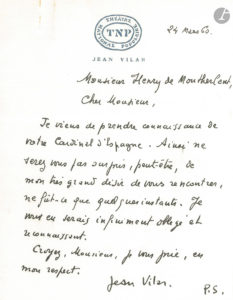 THEATRE
NATIONAL POPULAIRE
TNP
JEAN VILAR
24 mars 60.
Monsieur Henry de Montherlant,
Cher Monsieur,
Je viens de prendre connaissance de
votre Cardinal d'Espagne. Ainsi ne
serez vous pas surpris, peut-être, de
mon très grand désir de vous rencontrer,
ne fût-ce que quelques instants. Je
vous en serais infiniment obligé et
reconnaissant.
Croyez, Monsieur, je vous prie, en
mon respect.
Jean Vilar.
P.S.